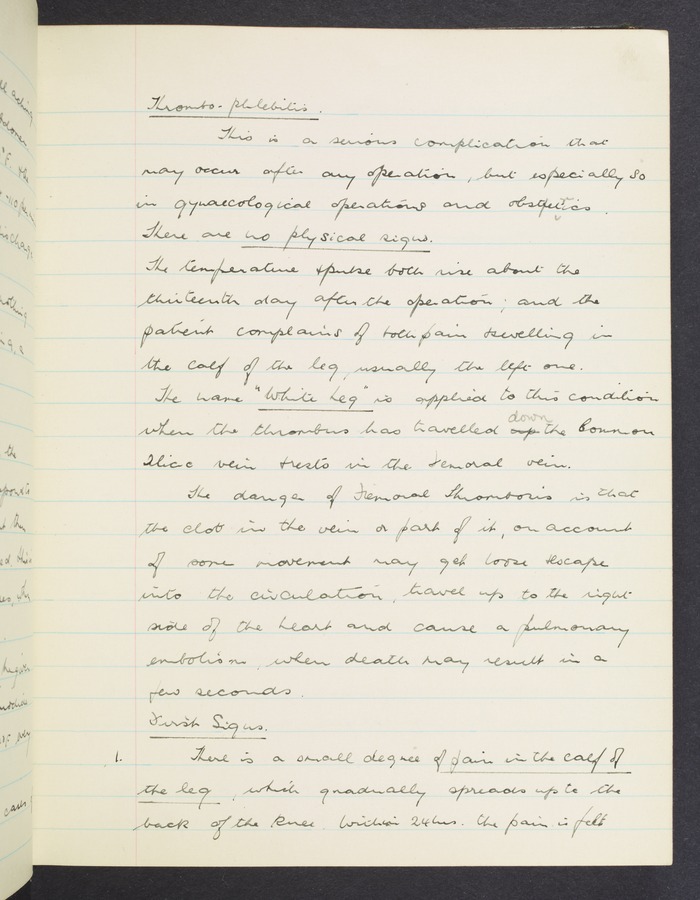 Thrombo-phlebitis.
This is a serious complication that
may occur after any operation, but especially so
in gynaecological operations and obstetrics.
There are no physical signs.
The temperature & pulse both rise about the
thirteenth day after the operation; and the
patient complains of both pain & swelling in
the calf of the leg, usually the left one.
The name "White Leg" is applied to this condition
down
when the thrombus has travelled up the Common
Iliac vein & rests in the Femoral vein.
The danger of Femoral Thrombosis is that
the clot in the vein or part of it, on account
of some movement may get loose & escape
into the circulation, travel up to the right
side of the heart and cause a pulmonary
embolism, when death may result in a
few seconds.
First Signs.
1. There is a small degree of pain in the calf of
the leg, which gradually spreads up to the
back of the Knee. Within 24hrs. the pain is felt